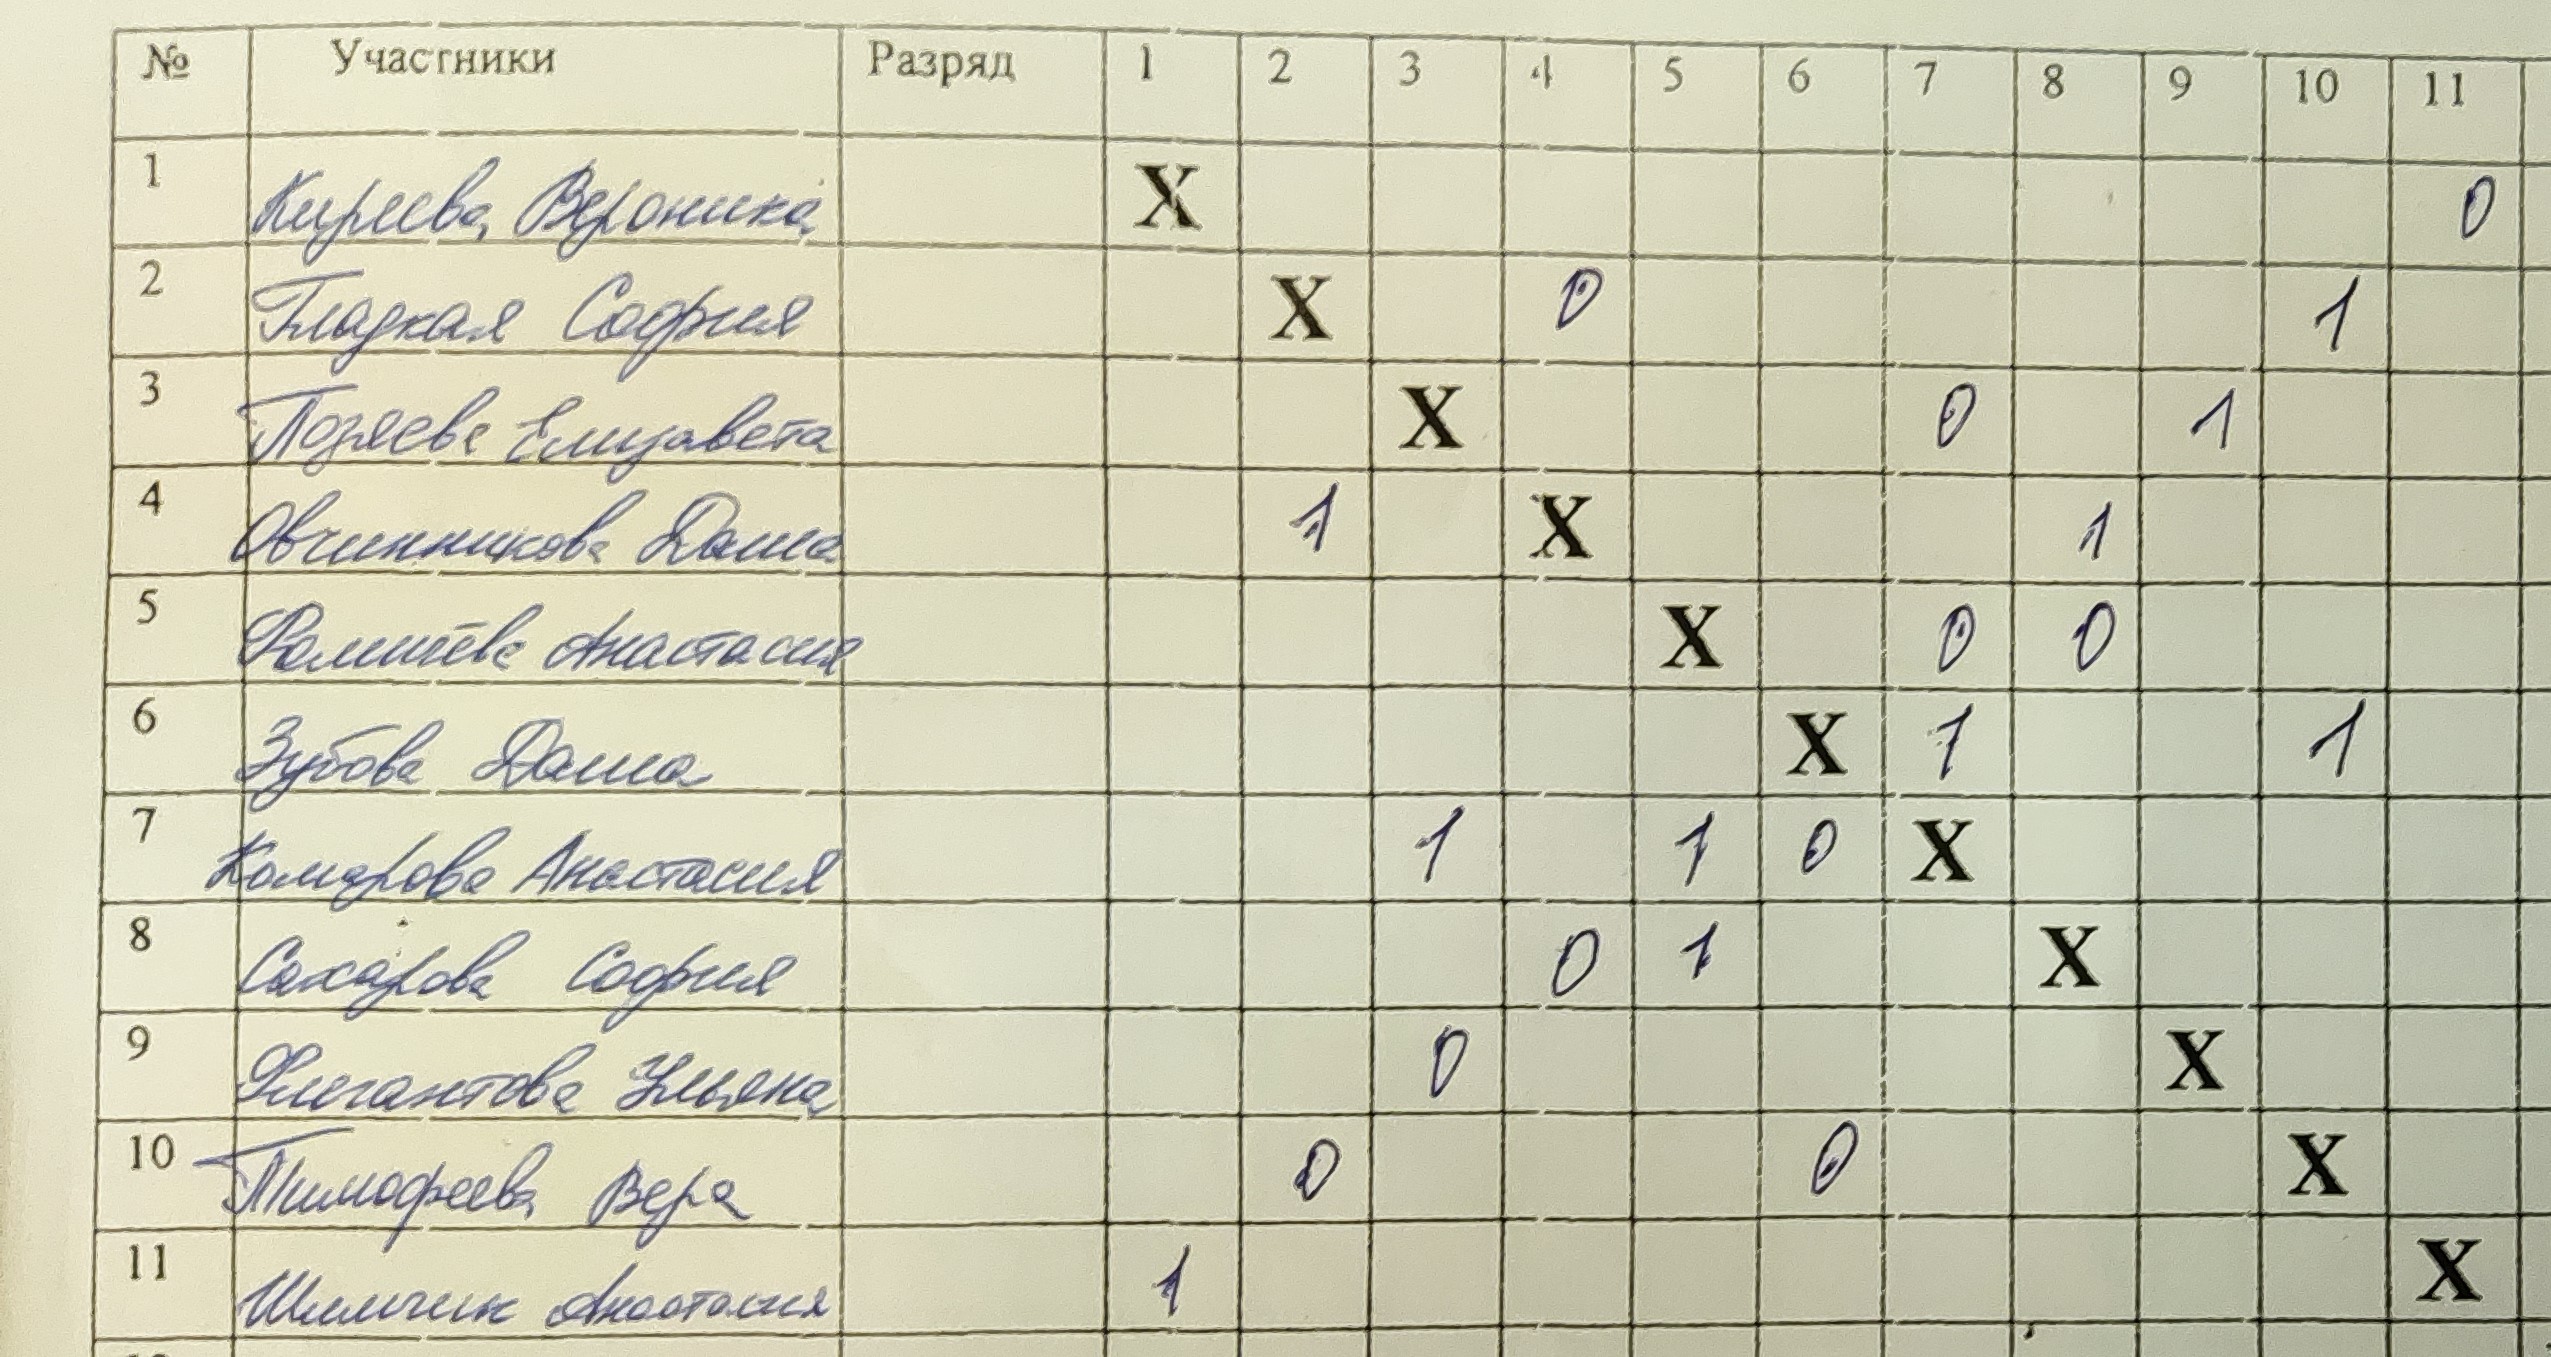 № Участники Разряд 1 2 3 4 5 6 7 8 9 10 11
1 Киреева Вероника X 0
2 Гладкая София X 0 1
3 Позяева Елизавета X 0 1
4 Овчинникова Даша 1 X 1
5 Анастасия X 0 0
6 Зубова Даша X 1 1
7 Комарова Анастасия 1 1 0 X
8 Сахарова София 0 1 X
9 Элегантова Ульяна 0 X
10 Тимофеева Вера 0 0 X
11 Шимчик Анастасия 1 X